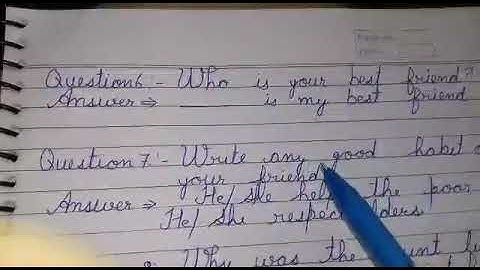 Question 6 :- Who is your best friend?
Answer ⇒ ________ is my best friend
Question 7 :- Write any good habit
your friend
Answer ⇒ He/she the poor
He/she respect elders
Why was the